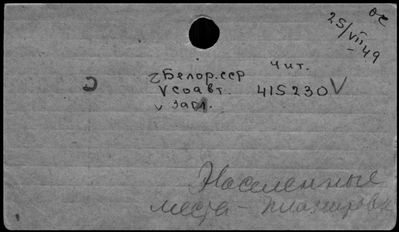 ос
25/VII-49
чит.
г Белор.сср
V соавт. 415230 V
V загл.
с
Населенные
места - планировка